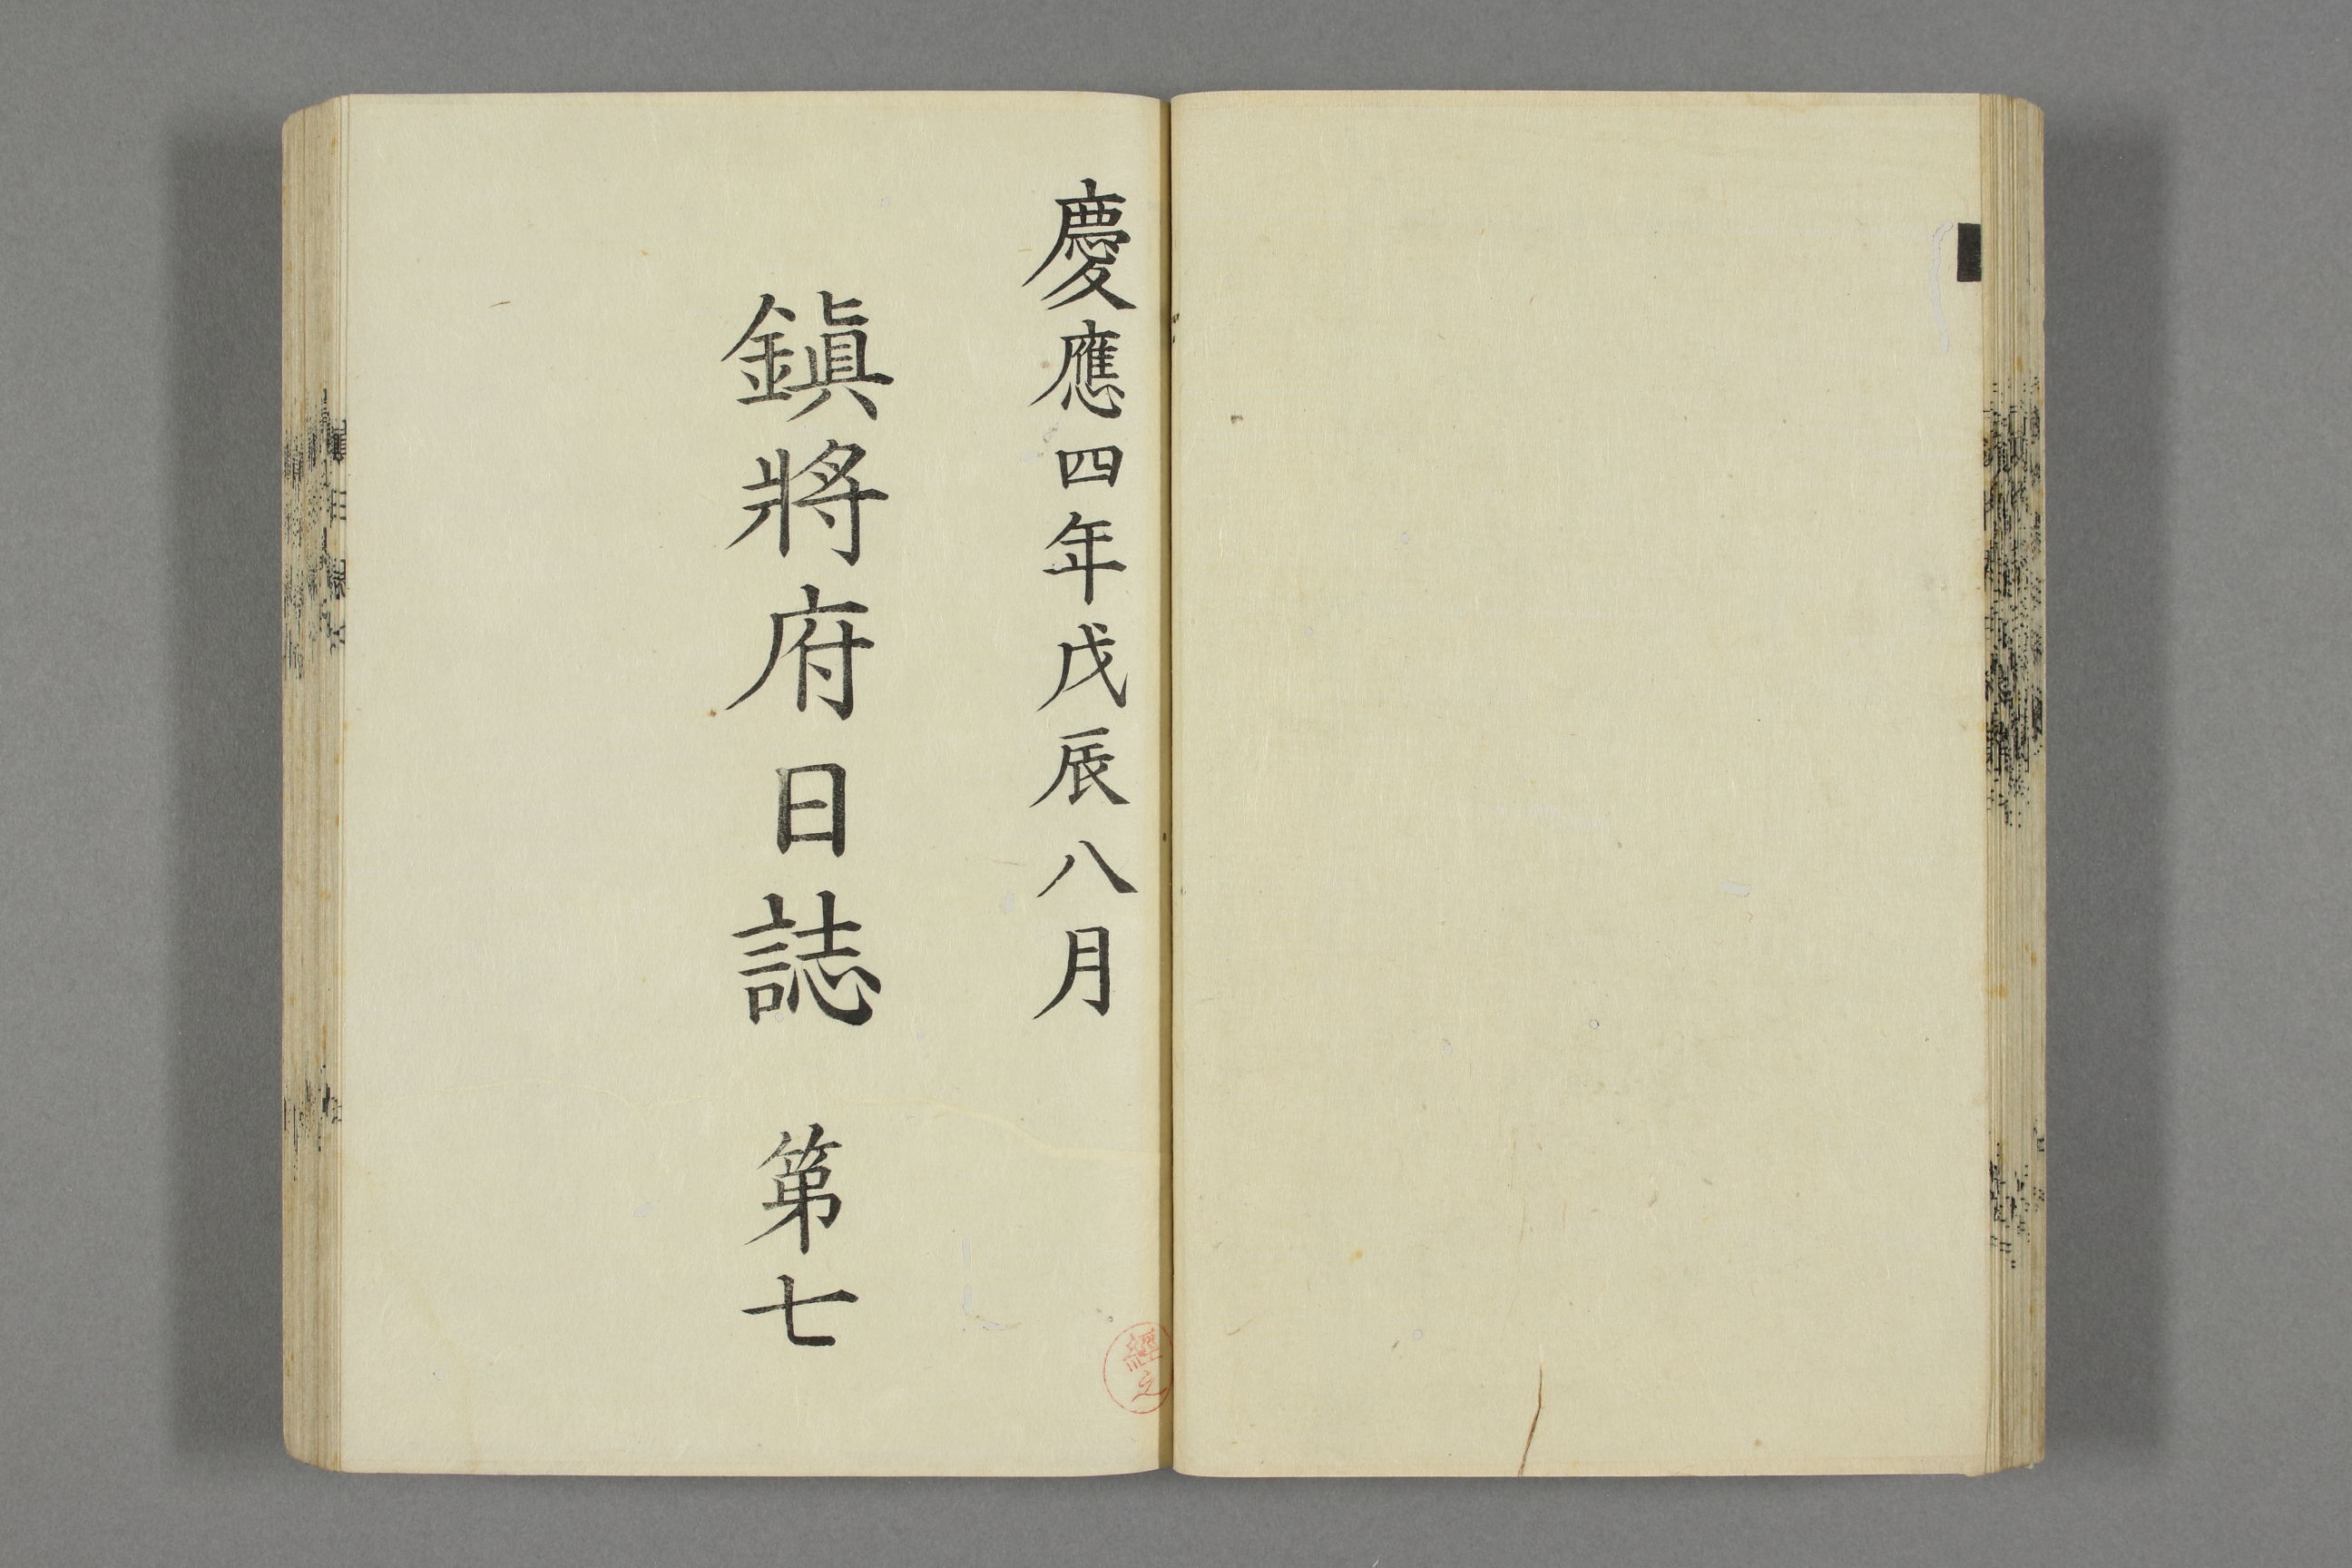 慶應四年戊辰八月
鎭將府日誌 第七